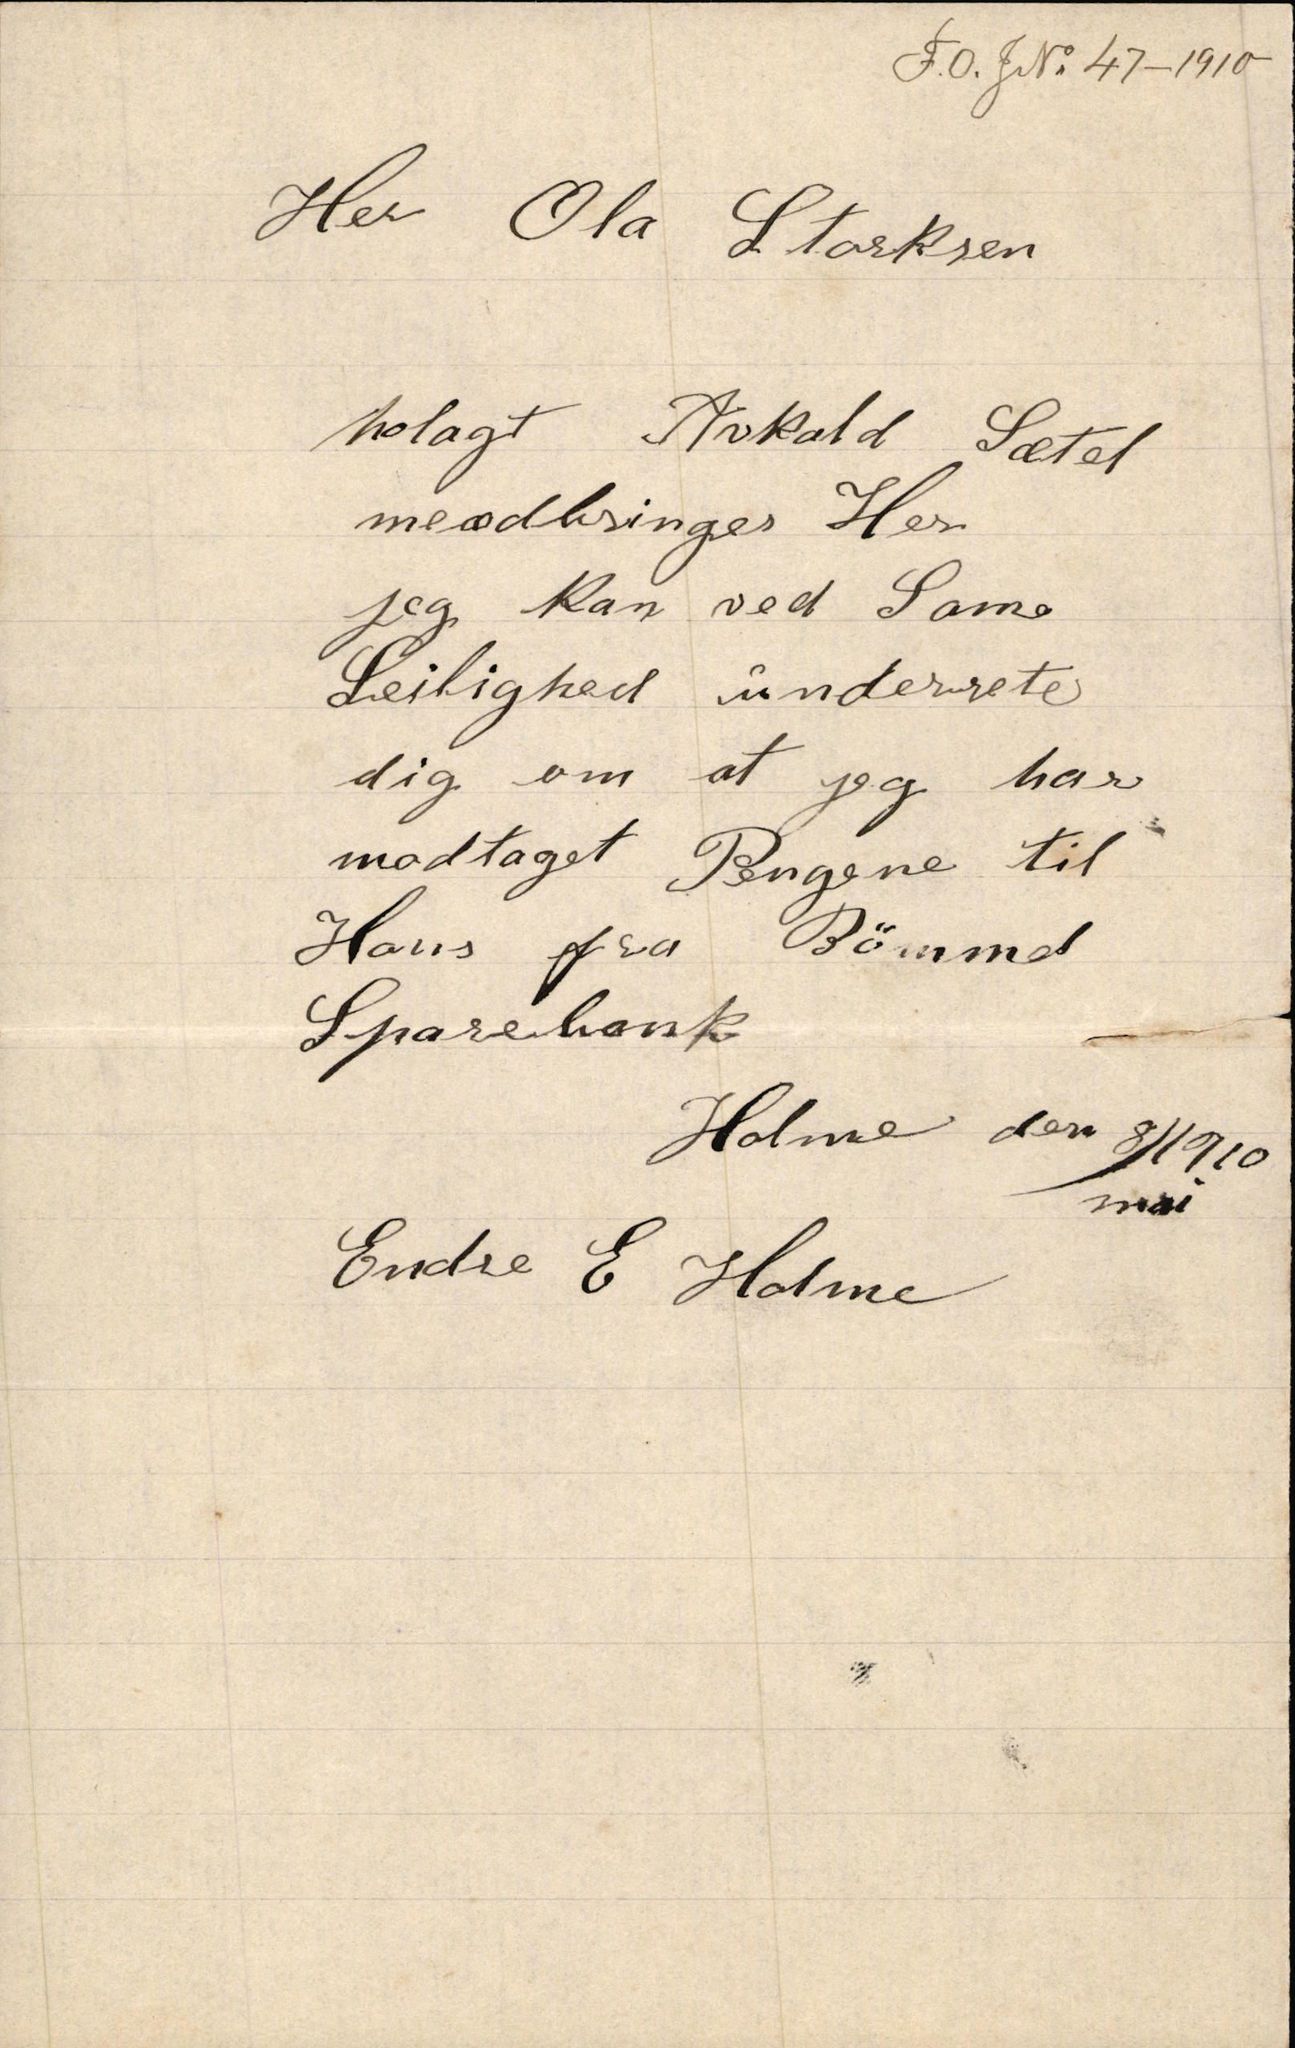 F.O. JNo 47-1910
Her Ola Storksen
Avkald Sætel
meodbringes Her
jeg kan ved Same
Leilighed underrete
dig om at jeg har
modtaget Pengene til
Hans fra Bömmel
Sparebank
Holme den 8/1910
mai
Endre E Holme